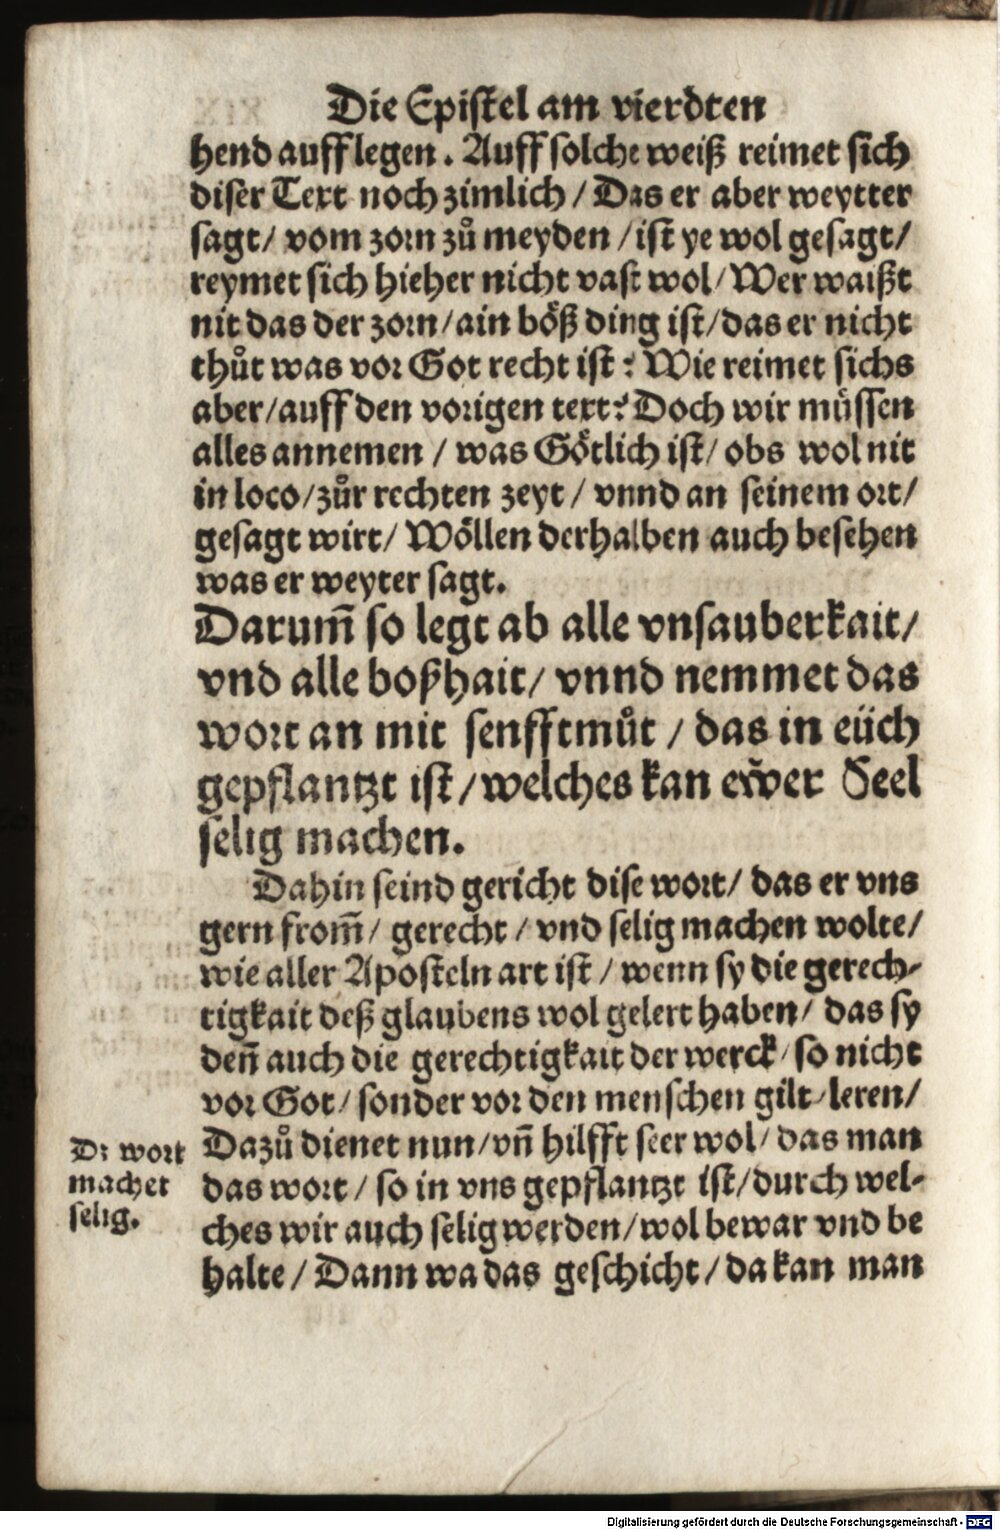 Die Epistel am vierdten
hend aufflegen. Auff solche weiß reimet sich
diser Text noch zimlich / Das er aber weytter
sagt / vom zorn zuͦ meyden / ist ye wol gesagt /
reymet sich hieher nicht vast wol / Wer waißt
nit das der zorn / ain boͤß ding ist / das er nicht
thuͦt was vor Got recht ist? Wie reimet sichs
aber / auff den vorigen text? Doch wir muͤssen
alles annemen / was Goͤtlich ist / obs wol nit
in loco / zuͦr rechten zeyt / vnnd an seinem ort /
gesagt wirt / Woͤllen derhalben auch besehen
was er weyter sagt.
Darum̄ so legt ab alle vnsauberkait /
vnd alle boßhait / vnnd nemmet das
wort an mit senfftmuͦt / das in eüch
gepflantzt ist / welches kan ew̎er Seel
selig machen.
Dahin seind gericht dise wort / das er vns
gern from̄ / gerecht / vnd selig machen wolte /
wie aller Aposteln art ist / wenn sy die gerech-
tigkait deß glaubens wol gelert haben / das sy
den̄ auch die gerechtigkait der werck / so nicht
vor Got / sonder vor den menschen gilt / leren /
Dazuͦ dienet nun / vn̄ hilfft seer wol / das man
das wort / so in vns gepflantzt ist / durch wel-
ches wir auch selig werden / wol bewar vnd be
halte / Dann wa das geschicht / da kan man
Dz wort
machet
selig.
Digitalisierung gefördert durch die Deutsche Forschungsgemeinschaft - DFG